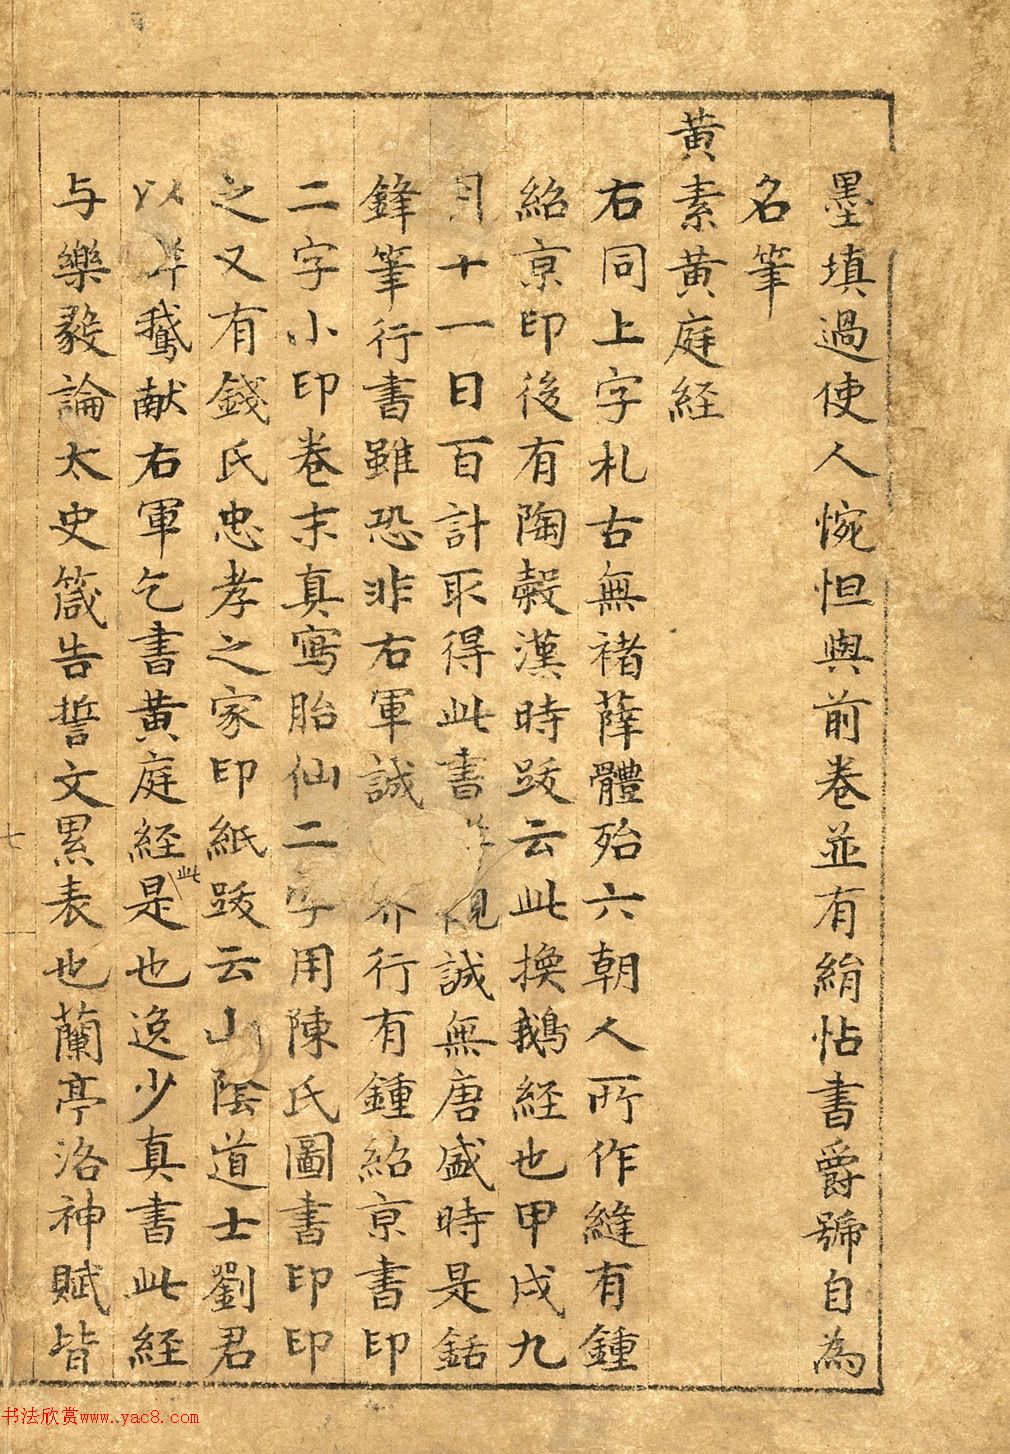 墨填過使人惋怛與前卷並有絹帖書爵號自為
名筆
黄素黄庭経
右同上字札古無褚薛體殆六朝人所作縫有鍾
紹亰印後有陶糓漢時跋云此換鵝経也甲戍九
月十一日百計取得此書 視誠無唐盛時是銛
鋒筆行書雖恐非右軍誠 界行有鍾紹亰書印
二字小印卷末真寫胎仙二字用陳氏圖書印印
之又有錢氏忠孝之家印紙跋云山陰道士劉君
以羣鵞献右軍乞書黄庭経此是也逸少真書此経
与樂毅論太史箴告誓文累表也蘭亭洛神賦皆
七
书法欣赏www.yac8.com